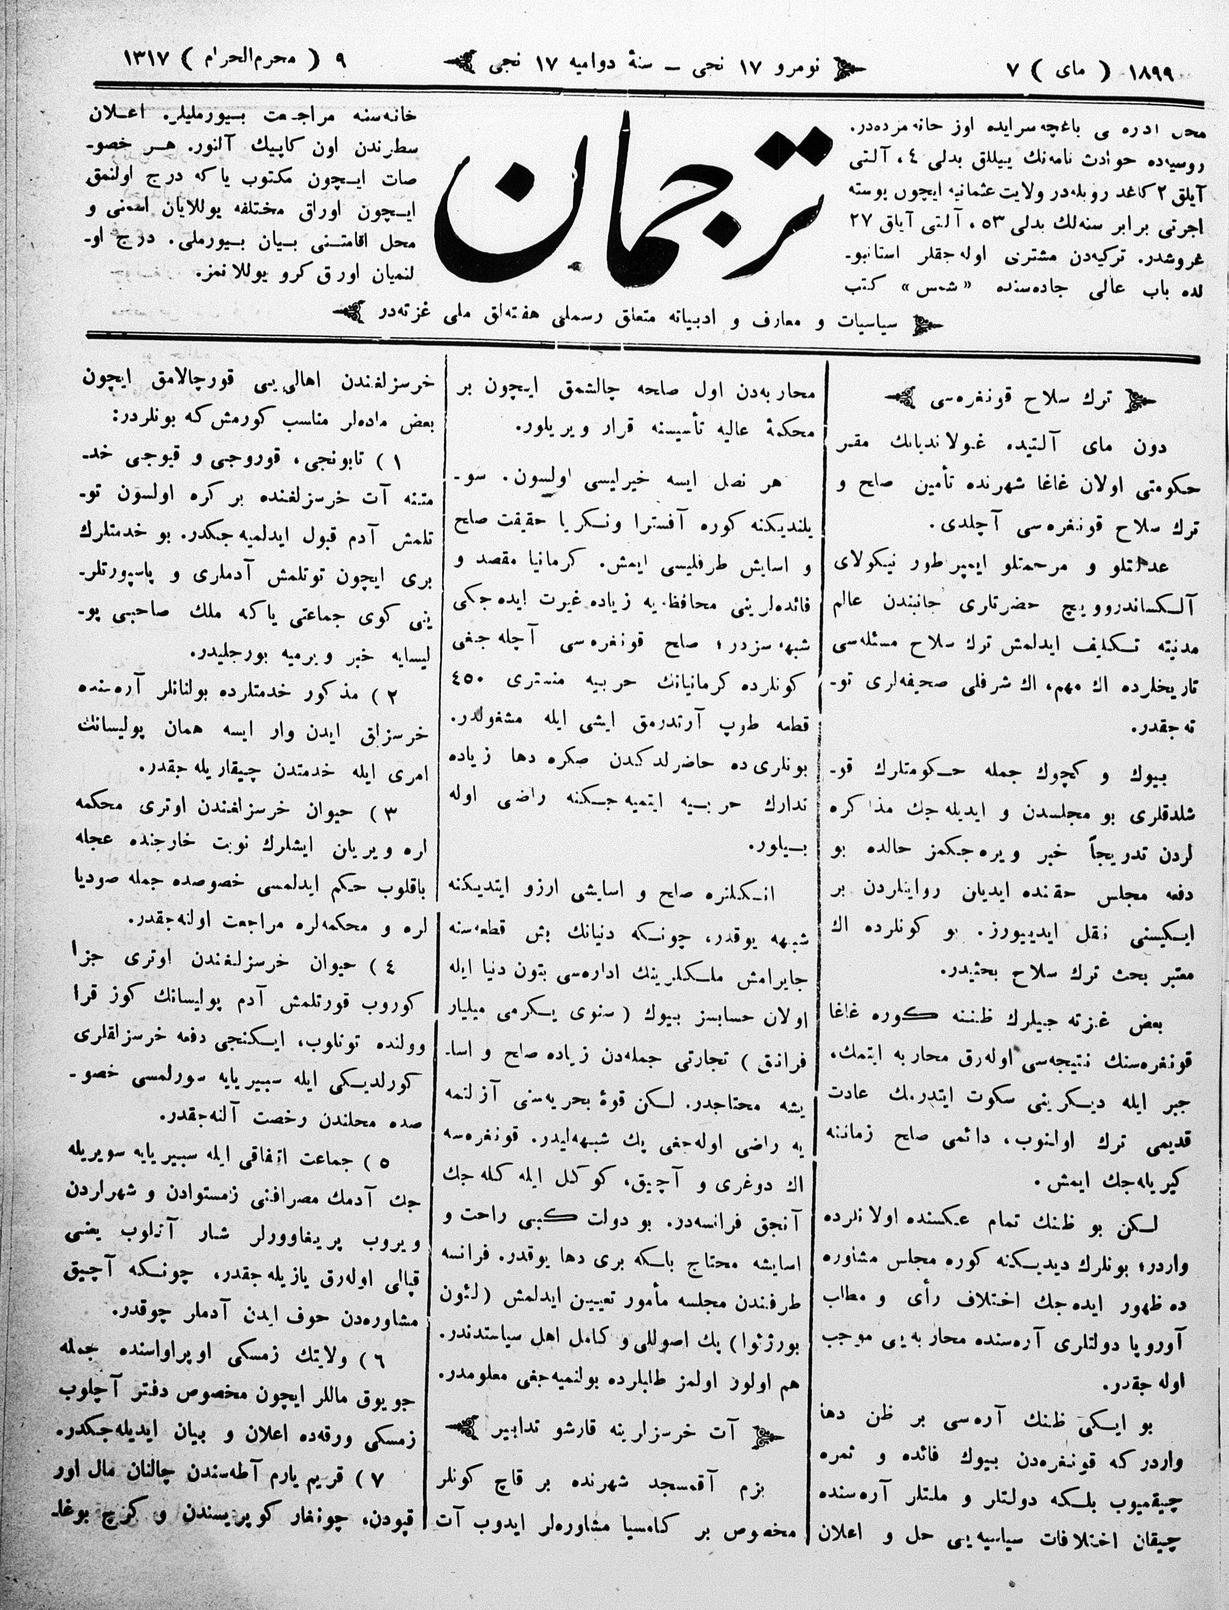 ١٨٩٩ ( ماى ) ٧
نومرو ١٧ نجى ـ سنۀ دواميه ١٧ نجى
٩ ( محرم‌الحرام ) ١٣١٧
محل اداره‌ى باغچه‌سرايده اوز خانه‌مزده‌در.
روسيه‌ده حوادث نامه‌نك ييللق بدلى ٤، آلتى
آيلق ٢ كاغد روبله‌در ولايت عثمانيه ايچون پوسته
اجرتى برابر سنه‌لك بدلى ٥٣، آلتى آيلق ٢٧
غروشدر. تركيه‌دن مشترى اوله‌جقلر استانبو-
لده باب عالى جاده‌سنده «شمس» كتب
ترجمان
خانه‌سنه مراجعت بيورمليلر. اعلان
سطرندن اون كاپيك آلنور. هر خصو-
صات ايچون مكتوب ياكه درج اولنمق
ايچون اوراق مختلفه يوللايان اسمنى و
محل اقامتنى بيان بيورملى. درج او-
لنميان اوراق كرو يوللانمز.
سياسيات و معارف و ادبياته متعلق رسملى هفته‌لق ملى غزته‌در
ترك سلاح قونغره‌سى
دون ماى آلتيده غولانديانك مقر
حكومتى اولان غاغا شهرنده تأمين صلح و
ترك سلاح قونغره‌سى آچلدى.
عدالتلو و مرحمتلو ايمپراطور نيكولاى
آلكساندروويچ حضرتلرى جانبندن عالم
مدنيته تكليف ايدلمش ترك سلاح مسئله‌سى
تاريخلرده اك مهم، اك شرفلى صحيفه‌لرى تو-
ته‌جقدر.
بيوك و كچوك جمله حكومتلرك قو-
شلدقلرى بو مجلسدن و ايديله‌جك مذاكره
لردن تدريجاً خبر ويره‌جكمز حالده بو
دفعه مجلس حقنده ايديان روايتلردن بر
ايكيسنى نقل ايدييورز. بو كونلرده اك
معتبر بحث ترك سلاح بحثيدر.
بعض غزته‌جيلرك ظننه كوره غاغا
قونغره‌سنك نتيجه‌سى اوله‌رق محاربه ايتمك،
جبر ايله ديكرينى سكوت ايتدرمك عادت
قديمى ترك اولنوب، دائمى صلح زماننه
كيريله‌جك ايمش.
لكن بو ظنك تمام عكسنده اولانلرده
واردر؛ بونلرك ديديكنه كوره مجلس مشاوره
ده ظهور ايده‌جك اختلاف رأى و مطلب
آوروپا دولتلرى آره‌سنده محاربه‌يى موجب
اوله‌جقدر.
بو ايكى ظنك آره‌سى بر ظن دها
واردر كه قونغره‌دن بيوك فائده و ثمره
چيقميوب بلكه دولتلر و ملتلر آره‌سنده
چيقان اختلافات سياسيه‌يى حل و اعلان
محاربه‌دن اول صلحه چالشمق ايچون بر
محكمۀ عاليه تأسيسنه قرار ويريلور.
هر نصل ايسه خيرليسى اولسون. سو-
يلنديكنه كوره آفستريا ونكريا حقيقت صلح
و اسايش طرفليسى ايمش. كرمانيا مقصد و
فائده‌لرينى محافظه‌يه زياده غيرت ايده‌جكى
شبهه‌سزدر؛ صلح قونغره‌سى آچله‌جغى
كونلرده كرمانيانك حربيه منسترى ٤٥٠
قطعه طوپ آرتدرمق ايشى ايله مشغولدر.
بونلرى‌ده حاضرلدكدن صكره دها زياده
تدارك حربيه ايتميه‌جكنه راضى اوله
بيلور.
انكلتره صلح و اسايشى ارزو ايتديكنه
شبهه يوقدر، چونكه دنيانك بش قطعه‌سنه
جايرامش ملكلرينك اداره‌سى بتون دنيا ايله
اولان حسابسز بيوك ( سنوى يكرمى ميليار
فرانق ) تجارتى جمله‌دن زياده صلح و اسا-
يشه محتاجدر. لكن قوۀ بحريه‌سنى آزلتمه
يه راضى اوله‌جغى پك شبهه‌ليدر. قونغره‌سه
اك دوغرى و آچيق، كوكل ايله كله‌جك
آنجق فرانسه‌در. بو دولت كبى راحت و
اسايشه محتاج باسكه برى دها يوقدر. فرانسه
طرفندن مجلسه مأمور تعيين ايدلمش (لئون
بورژوا) پك اصوللى و كامل اهل سياستدندر.
هم اولور اولمز طلبلرده بولنميه‌جغى معلومدر.
آت خرسزلرينه قارشو تدابير
بزم آقمسجد شهرنده بر قاچ كونلر
مخصوص بر كامسيا مشاوره‌لر ايدوب آت
خرسزلغندن اهالى‌يى قورچالامق ايچون
بعض ماده‌لر مناسب كورمش كه بونلردر:
١ ) تابونجى، قوروجى و قپوجى خد-
متنه آت خرسزلغنده بر كره اولسون تو-
تلمش آدم قبول ايدلميه‌جكدر. بو خدمتلرك
برى ايچون توتلمش آدملرى و پاسپورتلر-
ينى كوى جماعتى ياكه ملك صاحبى پو-
ليسايه خبر ويرميه بورجليدر.
٢ ) مذكور خدمتلرده بولنانلر آره‌سنده
خرسزلق ايدن وار ايسه همان پوليسانك
امرى ايله خدمتدن چيقاريله‌جقدر.
٣ ) حيوان خرسزلغندن اوترى محكمه
لره ويريان ايشلرك نوبت خارجنده عجله
باقلوب حكم ايدلمسى خصوصده جمله صوديا
لره و محكمه‌لره مراجعت اولنه‌جقدر.
٤ ) حيوان خرسزلغندن اوترى جزا
كوروب قورتلمش آدم پوليسانك كوز قرا
وولنده توتلوب، ايكنجى دفعه خرسزلقلرى
كورلديكى ايله سبيريايه سورلمسى خصو-
صده محلندن رخصت آلنه‌جقدر.
٥ ) جماعت اتفاقى ايله سبيريايه سويريله
جك آدمك مصرافنى زمستوادن و شهراردن
ويروب پريغاوورلر شار آتلوب يعنى
قپالى اوله‌رق يازيله‌جقدر، چونكه آچيق
مشاوره‌دن خوف ايدن آدملر چوقدر.
٦ ) ولايتك زمسكى اوپراواسنده جمله
جويوق ماللر ايچون مخصوص دفتر آچلوب
زمسكى ورقه‌ده اعلان و بيان ايديله‌جكدر.
٧ ) قريم يارم آطه‌سندن چالنان مال اور
قپودن، چونغار كوپريسندن و كرچ بوغا-